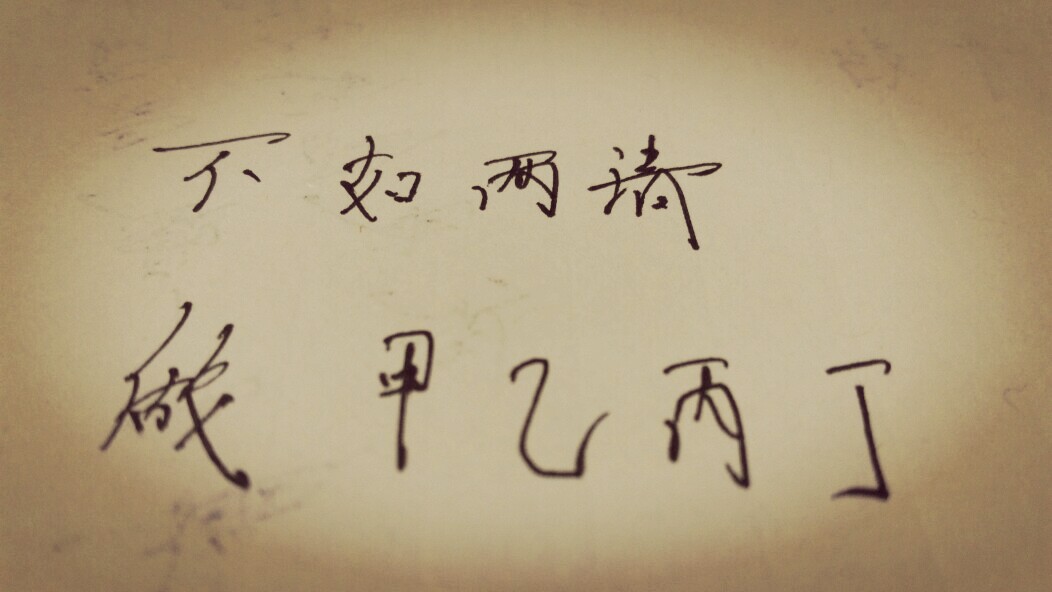 不如两清
做甲乙丙丁